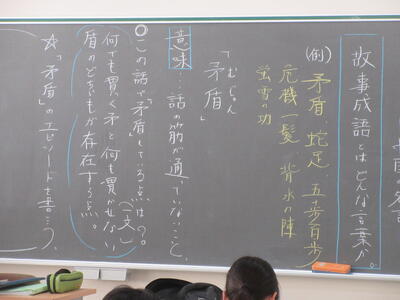 故事成語とはどんな言葉か。
(例) 矛盾、蛇足、五十歩百歩
危機一髪、背水の陣
蛍雪の功
「矛盾」
むじゅん
意味…話の筋が通っていないこと。
○この話で矛盾してる点は?。
(一文)
何でも貫く矛と何も貫かせない
盾のどちらもが存在する点。
☆「矛盾」のエピソードを書こう。